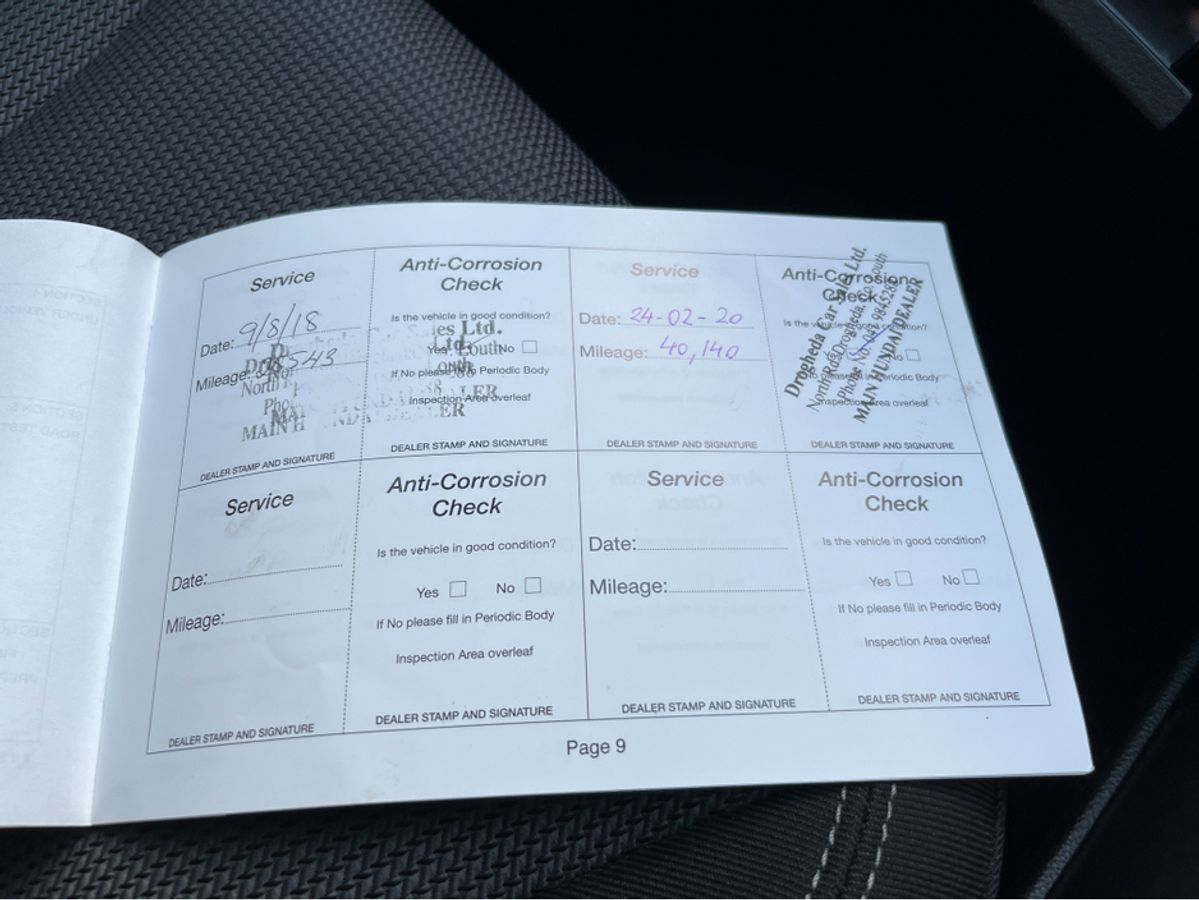 Service
Date: 9/8/18
Mileage: 543
North
MAIN H NDA DEALER
DEALER STAMP AND SIGNATURE
Anti-Corrosion
Check
Is the vehicle in good condition?
es Ltd.
Ltd.
Yes No
Louth
If No please Periodic Body
Inspection Area overleaf
DEALER STAMP AND SIGNATURE
Service
Date: 24-02-20
Mileage: 40,140
DEALER STAMP AND SIGNATURE
Anti-Corrosion
Check
Drogheda Car Sales Ltd.
North Rd. Drogheda, Co. Louth
Phone No. 041 984528
MAIN HUNDAI DEALER
Is the vehicle in good condition?
No
Periodic Body
Inspection Area overleaf
DEALER STAMP AND SIGNATURE
Service
Date:
Mileage:
DEALER STAMP AND SIGNATURE
Anti-Corrosion
Check
Is the vehicle in good condition?
Yes No
If No please fill in Periodic Body
Inspection Area overleaf
DEALER STAMP AND SIGNATURE
Service
Date:
Mileage:
DEALER STAMP AND SIGNATURE
Anti-Corrosion
Check
Is the vehicle in good condition?
Yes No
If No please fill in Periodic Body
Inspection Area overleaf
DEALER STAMP AND SIGNATURE
Page 9